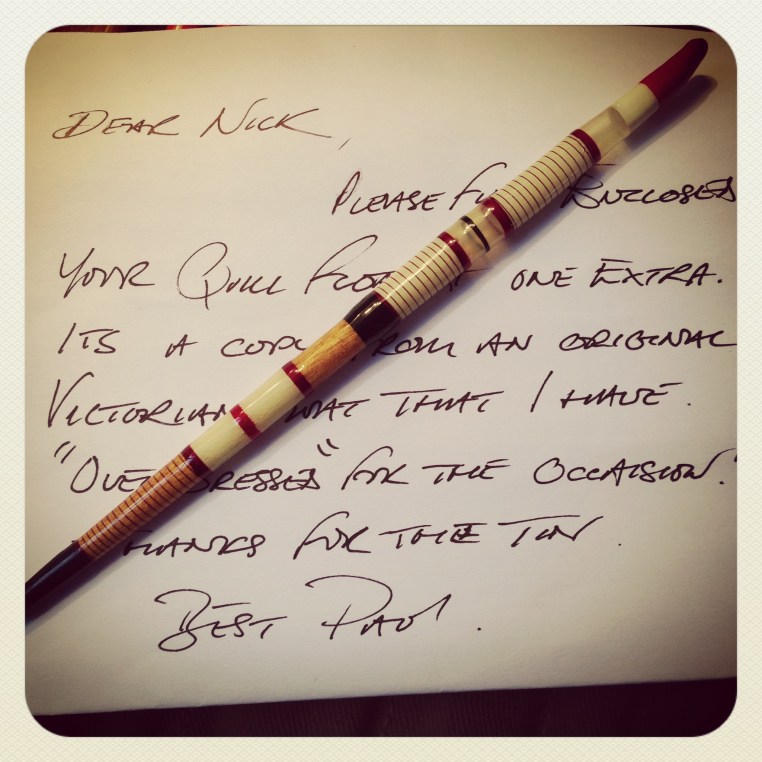 DEAR NICK,
PLEASE ENCLOSED
YOUR QUILL ONE EXTRA.
ITS A FROM AN ORIGINAL
VICTORIAN THAT I HAVE.
"OVER DRESSED" FOR THE OCCAISION.
THANKS FOR THE TIN.
BEST PAUL.